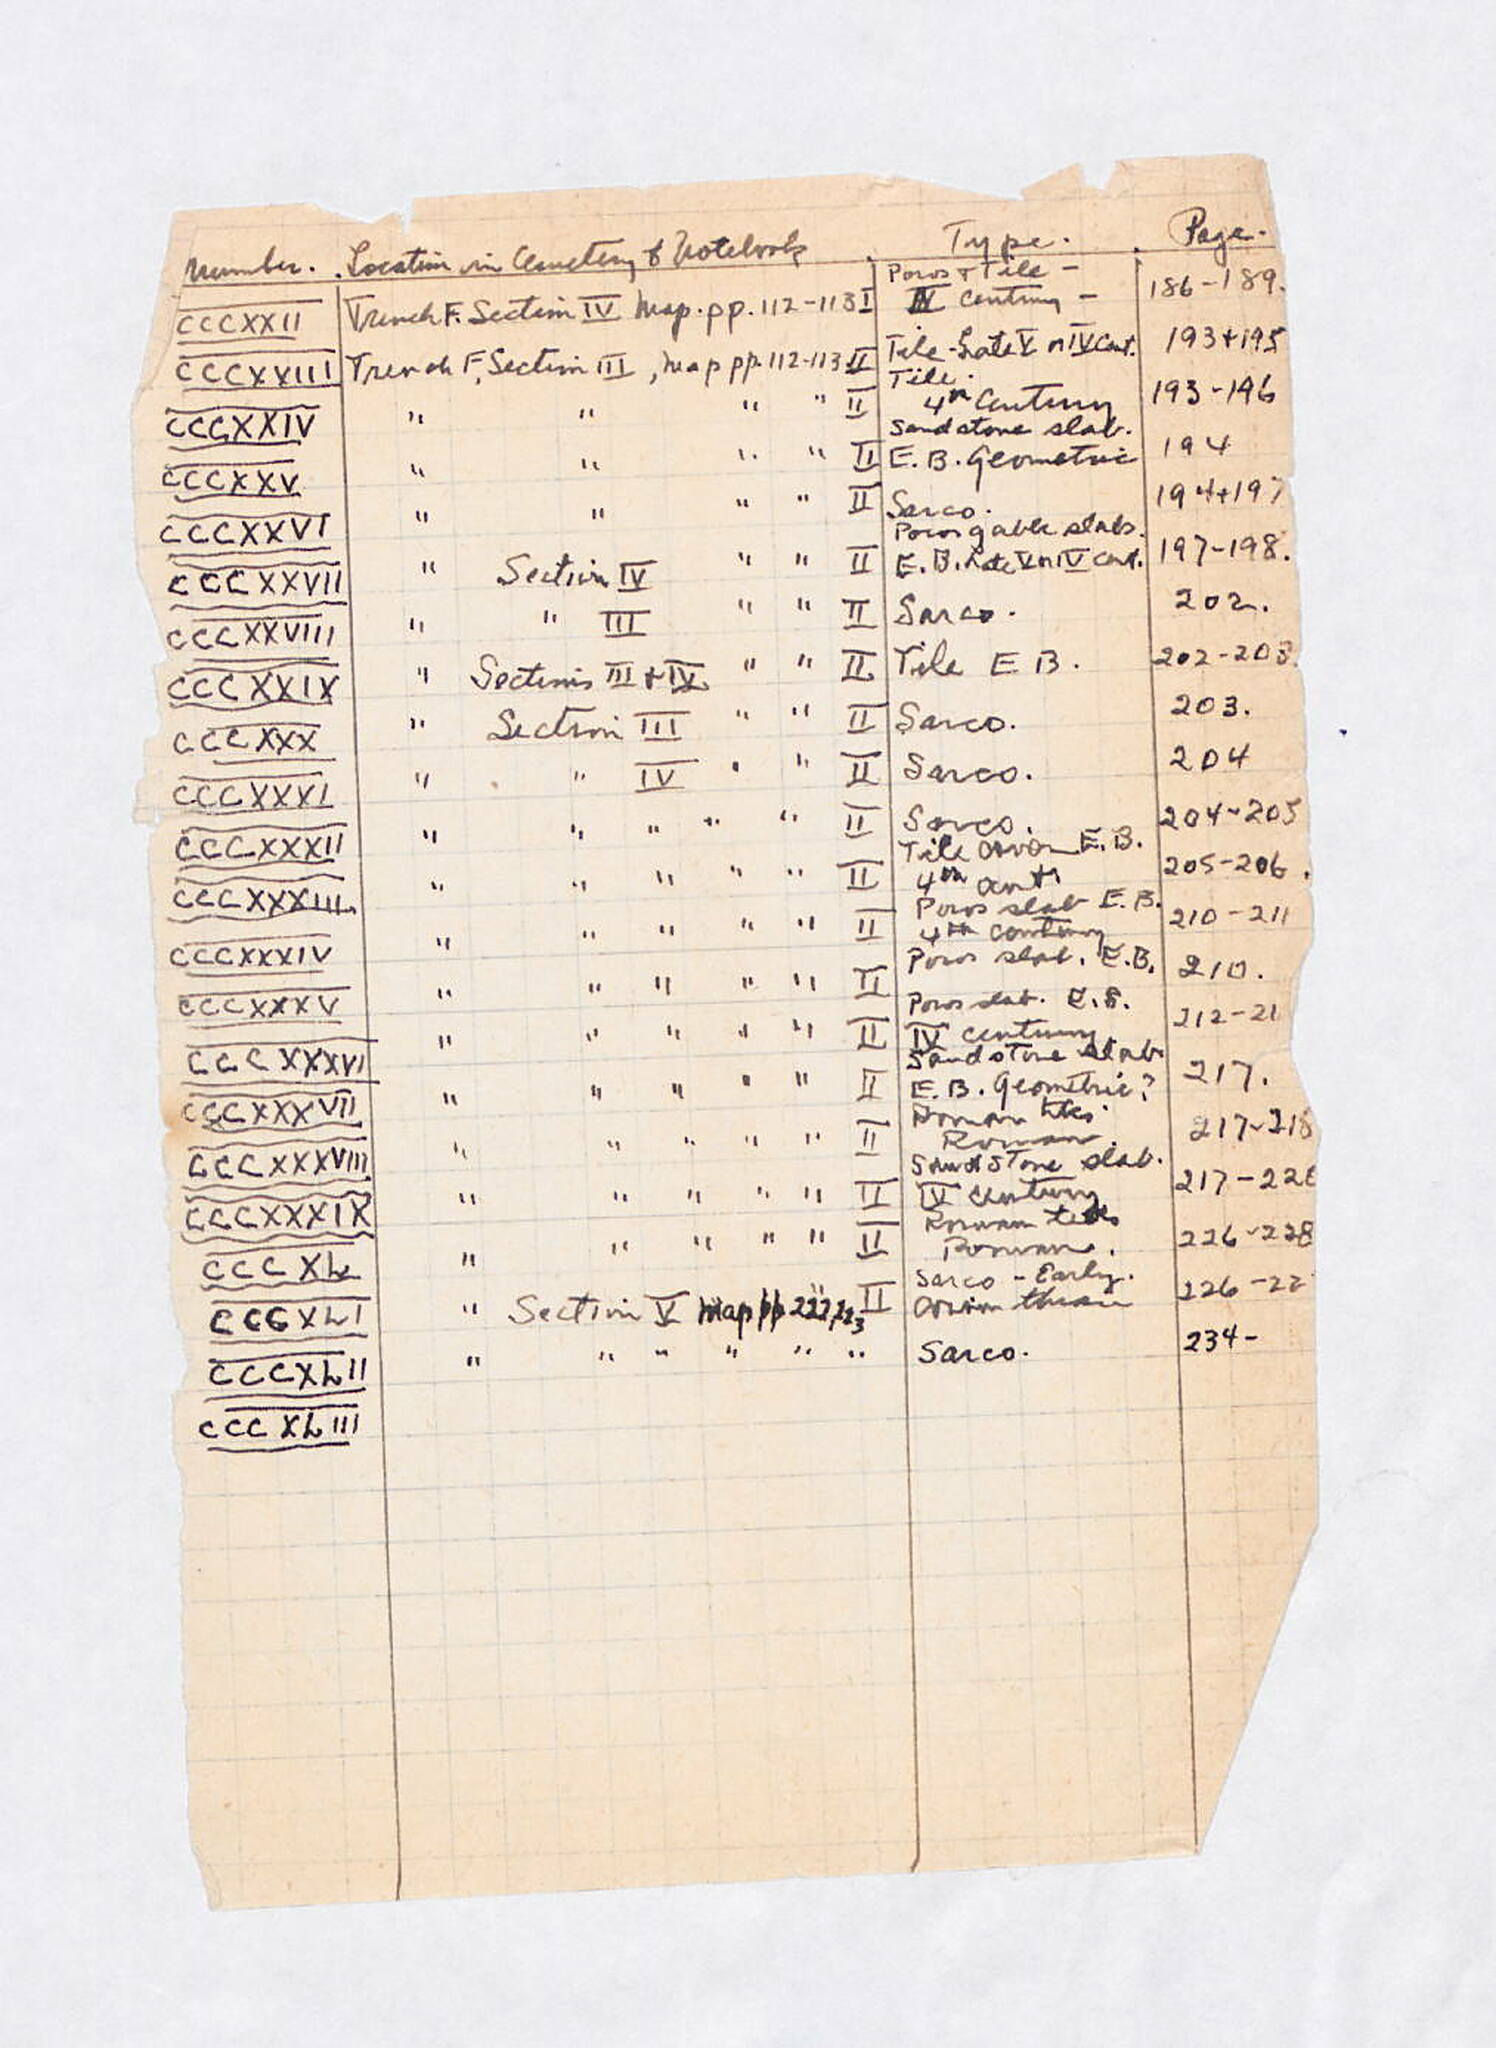 Number. Location in Cemetery & Notebook Type. Page.
CCCXXII Trench F. Section IV Map. pp. 112-113 I Poros + Tile - IV Century - 186-189.
CCCXXIII Trench F, Section III, Map pp. 112-113 II Tile - Late V or IV Cent. 193+195
CCCXXIV " " " " II Tile. 4th Century 193-196
CCCXXV " " " " II Sandstone slab. E.B. Geometric 194
CCCXXVI " " " " II Sarco. 194+197
CCCXXVII " Section IV " " II Poros gable slabs. E.B. Late V or IV Cent. 197-198.
CCCXXVIII " " III " " II Sarco. 202.
CCCXXIX " Sections III + IV " " II Tile E B. 202-203.
CCCXXX " Section III " " II Sarco. 203.
CCCXXXI " " IV " " II Sarco. 204
CCCXXXII " " " " " II Sarco. 204-205
CCCXXXIII " " " " " II Tile E.B. 4th 205-206.
CCCXXXIV " " " " " II Poros slab E.B. 4th Century 210-211
CCCXXXV " " " " " II Poros slab. E.B. 210.
CCCXXXVI " " " " " II Poros slab. E.B. IV Century 212-21
CCCXXXVII " " " " " II Sandstone slab E.B. Geometric? 217.
CCCXXXVIII " " " " " II Roman tiles. Roman. 217-218
CCCXXXIX " " " " " II Sandstone slab. IV Century 217-22
CCCXL " " " " " II Roman Roman. 226-228
CCCXLI " Section V Map pp 222, 223 II Sarco - Early. Corinthian 226-22
CCCXLII " " " " " " Sarco. 234-
CCCXLIII